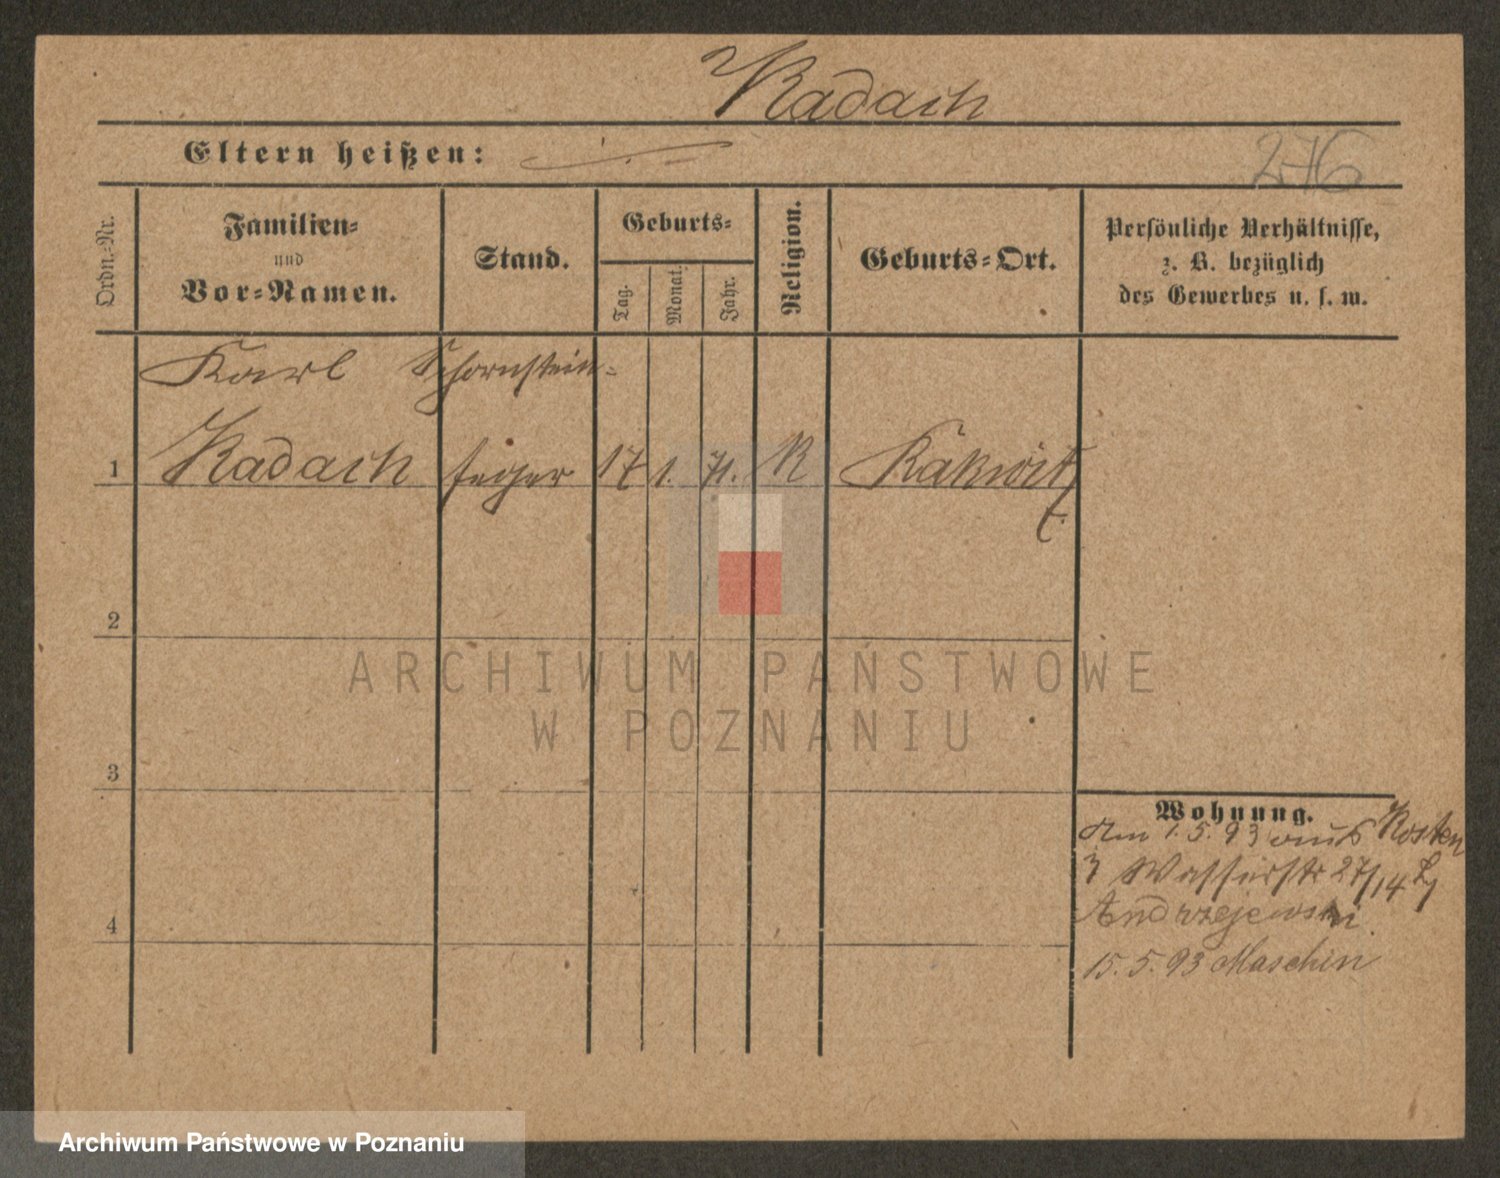 Radach
Eltern heißen:
276
Ordn.-Nr.
Familien-
und
Vor-Namen.
Stand.
Geburts-
Tag.
Monat.
Jahr.
Religion.
Geburts-Ort.
Persönliche Verhältnisse,
z. B. bezüglich
des Gewerbes u. s. w.
Karl Schornstein-
1 Radach feger 17 1. 71. K Rakwitz
2
3
4
Wohnung.
Am 1.5.93 aus Kosten
Wasserstr 27/14
Andrzejewski
15.5.93 Maschin
ARCHIWUM PAŃSTWOWE
W POZNANIU
Archiwum Państwowe w Poznaniu